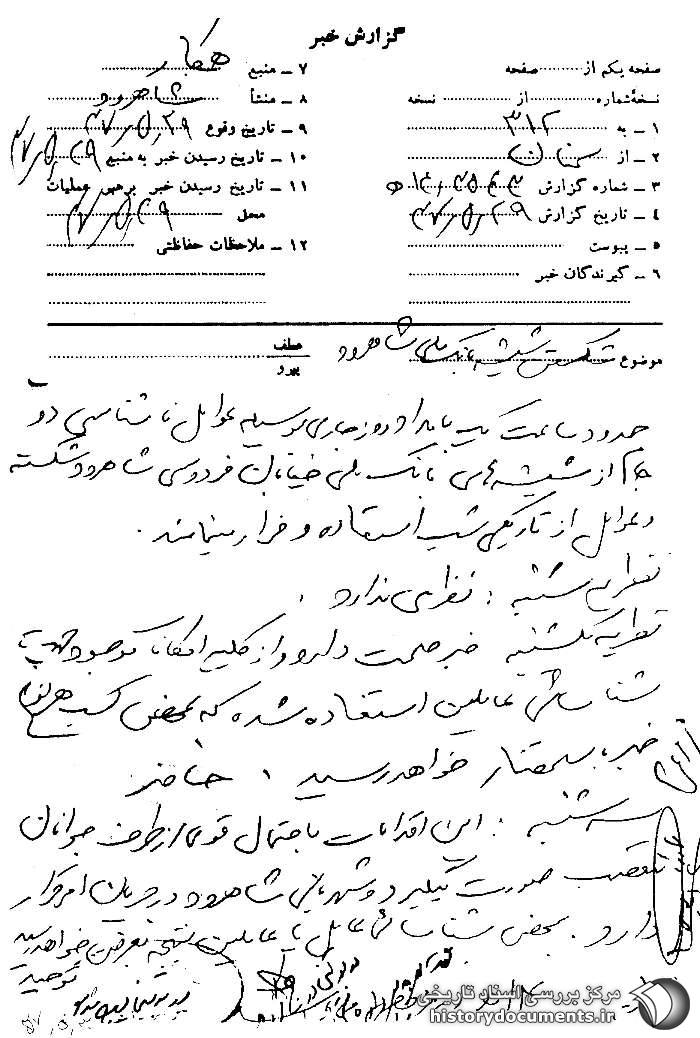 گزارش خبر
صفحه یکم از صفحه
نسخهٔ شماره از نسخه
۱ ـ به ۳۱۲
۲ ـ از
۳ ـ شماره گزارش
۴ ـ تاریخ گزارش ۴۷/۵/۲۹
۵ ـ پیوست
۶ ـ گیرندگان خبر
۷ ـ منبع همکار
۸ ـ منشأ شاهرود
۹ ـ تاریخ وقوع
۱۰ ـ تاریخ رسیدن خبر به منبع
۱۱ ـ تاریخ رسیدن خبر برهبر عملیات
محل
۱۲ ـ ملاحظات حفاظتی
موضوع شکستن شیشه بانک ملی شاهرود
عطف
پیرو
حدود ساعت یک بامداد روز جاری بوسیله عوامل ناشناسی دو
جام از شیشه‌های بانک ملی خیابان فردوسی شاهرود شکسته
و عوامل از تاریکی شب استفاده و فرار مینمایند.
نظریه شنبه : نظری ندارد .
نظریه یکشنبه خبر صحت دارد و از کلیه امکانات موجود جهت
شناسائی عاملین استفاده شده که بمحض کسب هرگونه
خبر، بعرض خواهد رسید .
سه شنبه : این اقدامات باحتمال قوی از طرف جوانان
متعصب صورت میگیرد و شهربانی شاهرود در جریان امر قرار
دارد . بمحض شناسائی عامل یا عاملین نتیجه بعرض خواهد رسید
مرکز بررسی اسناد تاریخی
historydocuments.ir